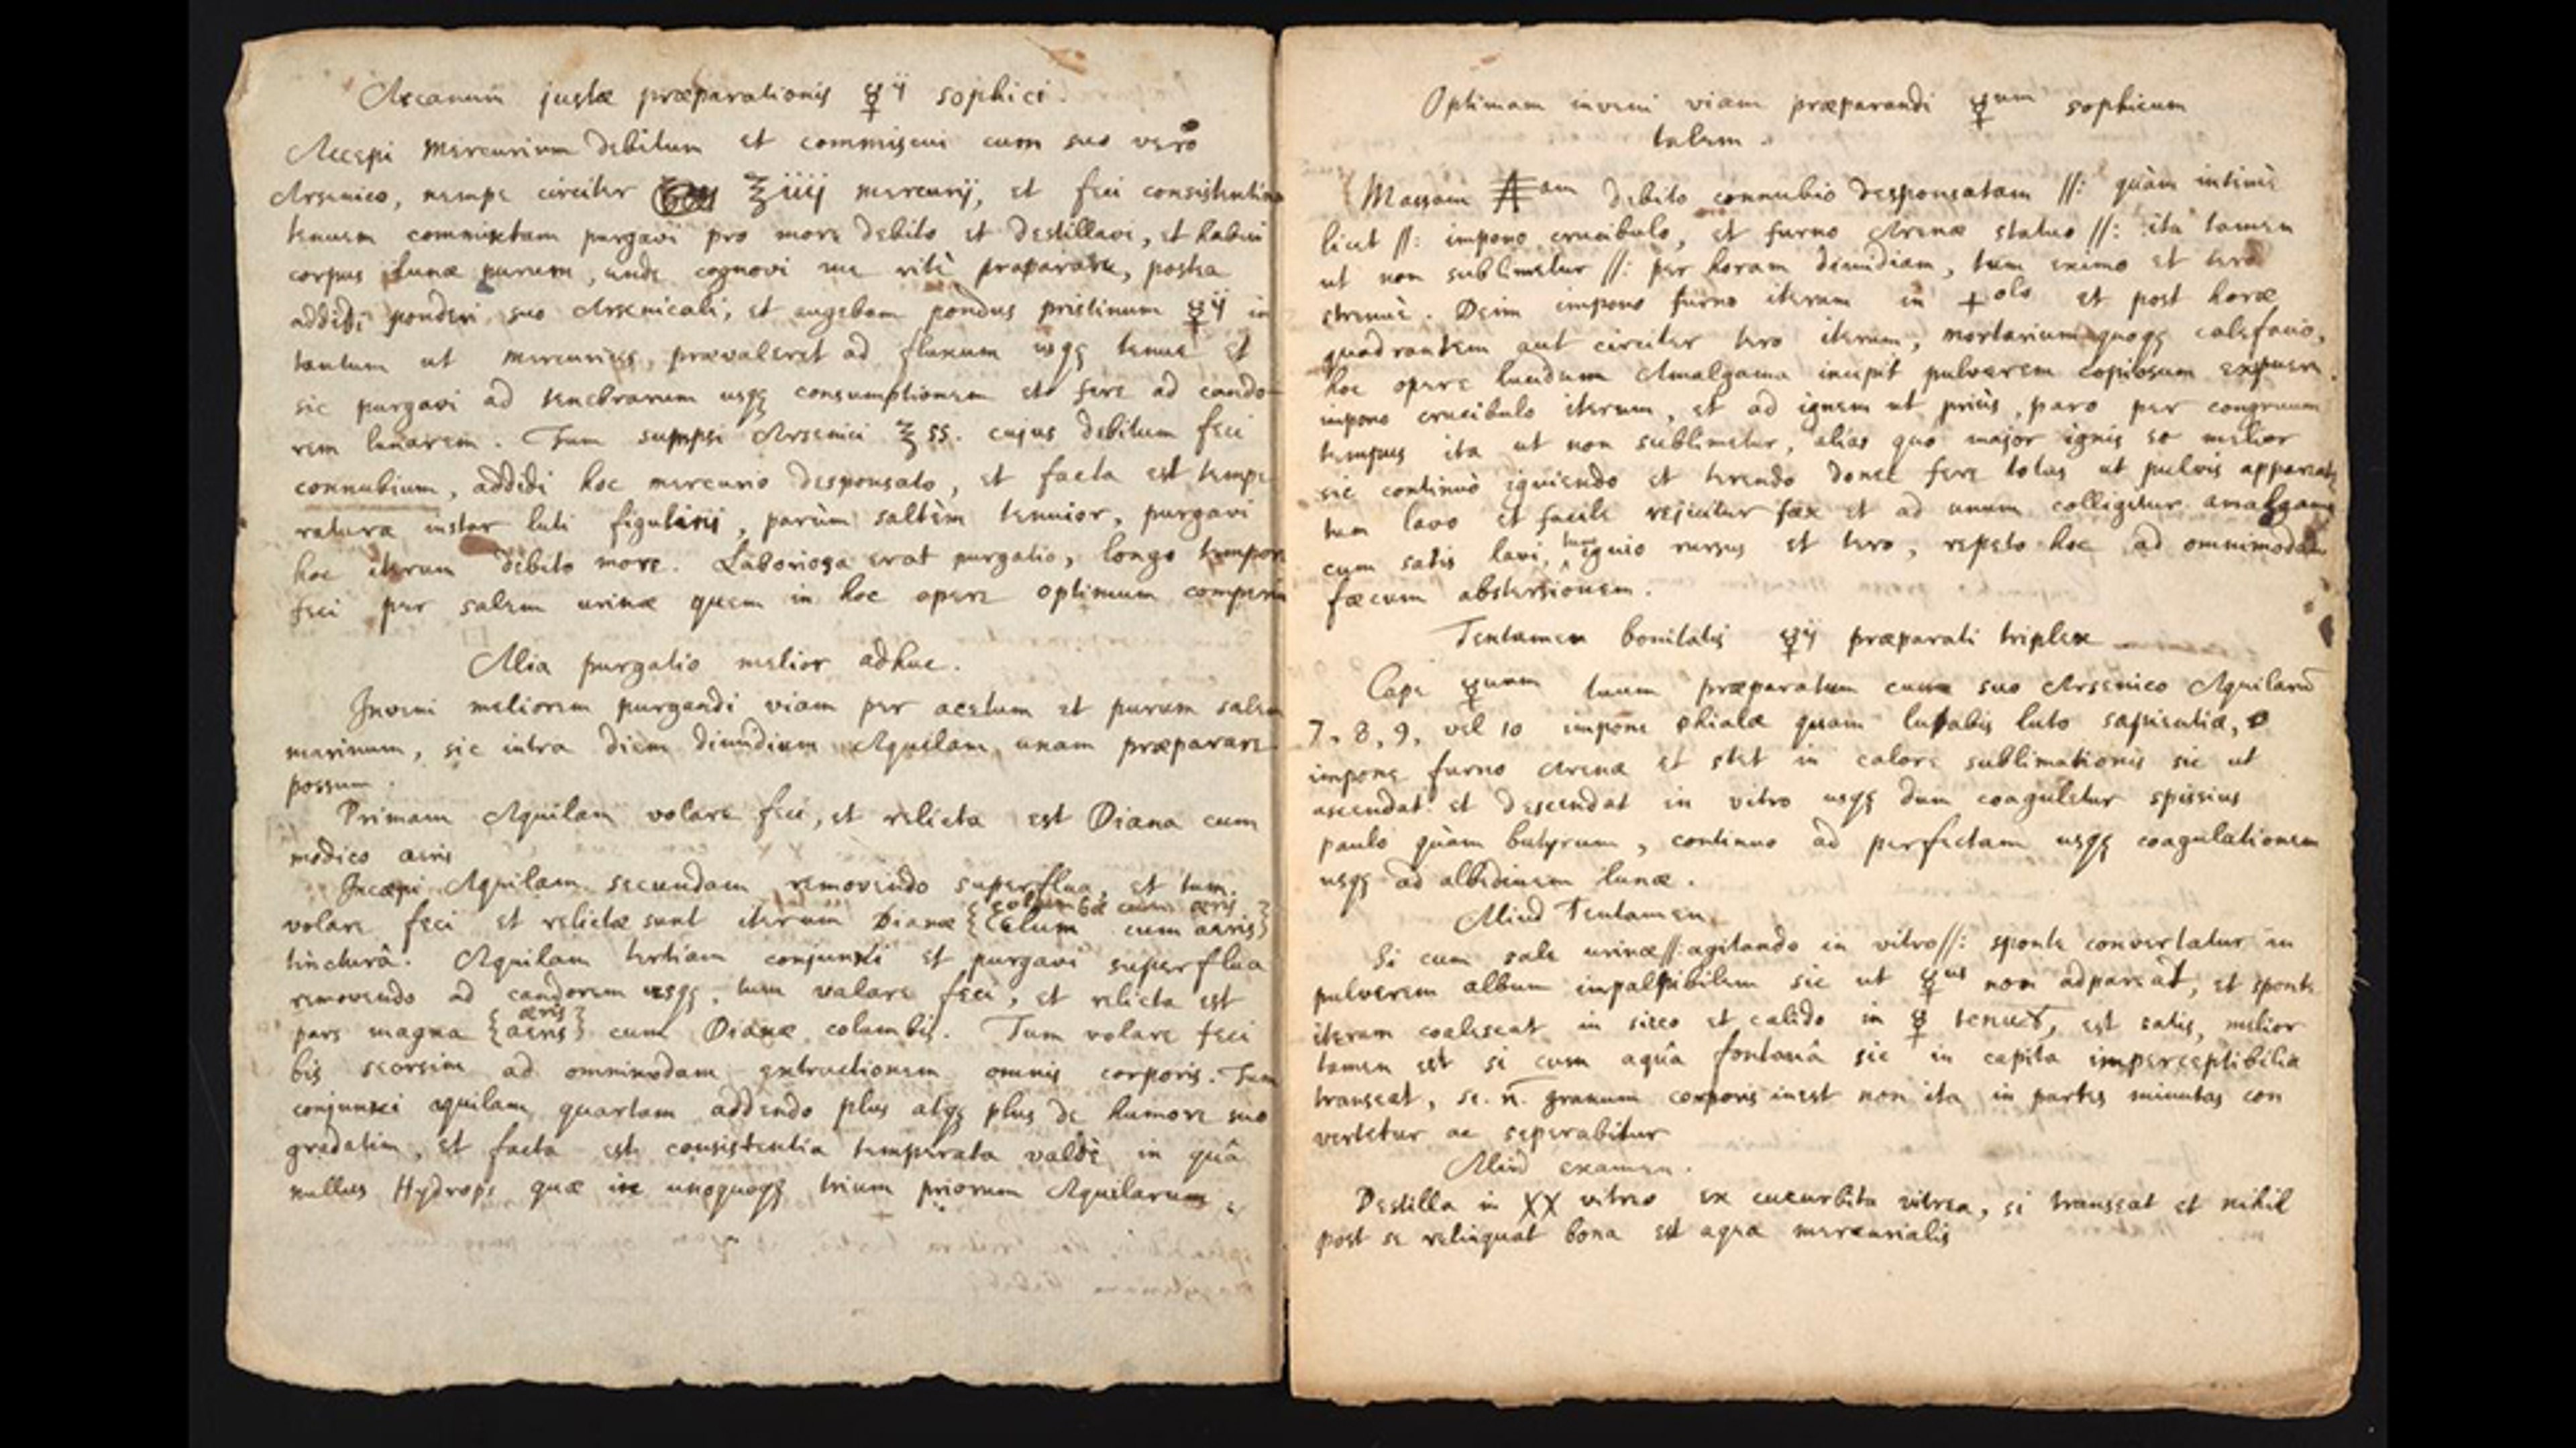 Arcanum justæ præparationis ☿ij sophici.
Accepi Mercurium debitum et commiscui cum suo vero
Arsenico, nempe circiter ℥iiij mercurij, et feci consistentiam
tenuem commixtam purgavi pro more debito et destillavi, et habui
corpus Lunæ purum, unde cognovi me ritè præparare, postea
addidi ponderi suo Arsenicali, et augebam pondus pristinum ☿ij in
tantum ut mercurius prævaleret ad fluxum usqꝫ tenue et
sic purgavi ad tenebrarum usqꝫ consumptionem et fere ad cando-
rem lunarem. Tum sumpsi Arsenici ℥ss. cujus debitum feci
connubium, addidi hoc mercurio desponsato, et facta est tempe
ratura instar luti figularij, parùm saltèm tenuior, purgavi
hoc iterum debito more. Laboriosa erat purgatio, longo tempore
feci per salem urinæ quem in hoc opere optimum comperi
Alia purgatio melior adhuc.
Inveni meliorem purgandi viam per acetum et purum salem
marinum, sic intra diem dimidium Aquilam unam præparare
possum.
Primam Aquilam volare feci, et relicta est Diana cum
modico æris
Incæpi Aquilam secundam removendo superflua, et tum
volare feci et relictæ sunt iterum Dianæ {columbæ cum æris} {Cælum cum aeris}
tincturâ. Aquilam tertiam conjunxi et purgavi superflua
removendo ad candorem usqꝫ, tum valare feci, et relicta est
pars magna {æris} {aeris} cum Dianæ columbis. Tum volare feci
bis seorsim ad omnimodam extructionem omnis corporis. Tum
conjunxi aquilam quartam addendo plus atqꝫ plus de humore suo
gradatim, et facta est consistentia temperata valdè in quâ
nullus Hydrops quæ in unoquoqꝫ trium priorum Aquilarum
Optimam inveni viam præparandi ☿um sophicum
talem.
Massam Aam debito connubio desponsatam //: quàm intimè
licet //: impono crucibulo, et furno Arenæ statuo //: ita tamen
ut non sublimetur //: per horam dimidiam, tum eximo et tero
strenuè. Dein impono furno iterum in +olo et post horæ
quadrantem aut circiter tero iterum, mortarium quoqꝫ calefacio,
hoc opere lucidum Amalgama incipit pulverem copiosum expuere.
impono crucibulo iterum, et ad ignem ut priùs, paro per congruum
tempus ita ut non sublimetur, alias quo major ignis eo melior
sic continuò igniendo et terendo donec fere totus ut pulvis appareat
tum lavo et facile rejicitur fæx et ad unum colligitur amalgama
cum satis lavi, tum ignio rursus et tero, repeto hoc ad omnimodam
fæcum abstersionem.
Tentamen bonitatis ☿ij præparati triplex
Cape ☿um tuum præparatum cum suo Arsenico Aquilarum
7, 8, 9, vel 10 impone phialæ quam lutabis luto sapientiæ,
impone furno Arenæ et stet in calore sublimationis sic ut
ascendat et descendat in vitro usqꝫ dum coaguletur spissius
paulo quàm butyrum, continuo ad perfectam usqꝫ coagulationem
usqꝫ ad albedinem lunæ.
Aliud Tentamen
Si cum sale urinæ //: agitando in vitro //: sponte convertatur in
pulverem album impalpibilem sic ut ☿us non adpareat, et sponte
iterum coalescat in sicco et calido in ☿ tenuem, est satis, melior
tamen est si cum aquâ fontanâ sic in capita imperceptibilia
transeat, se. n̄. granum corporis inest non ita in partes minutas con
vertetur ac seperabitur
Aliud examen.
Destilla in XX vitreo ex cucurbita vitrea, si transeat et nihil
post se relinquat bona est aqua mercurialis